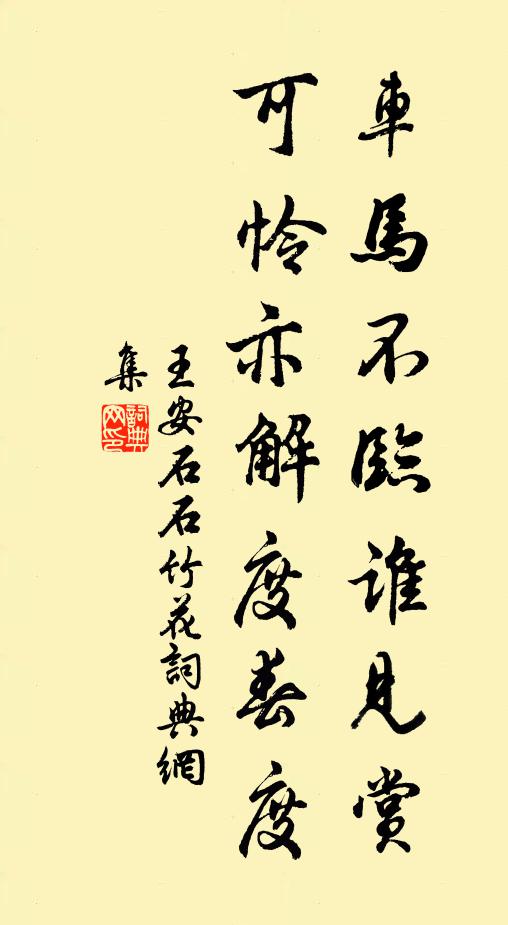 車馬不臨誰見賞
可怜亦解度春度
王安石石竹花詞典網
集
詞典网印